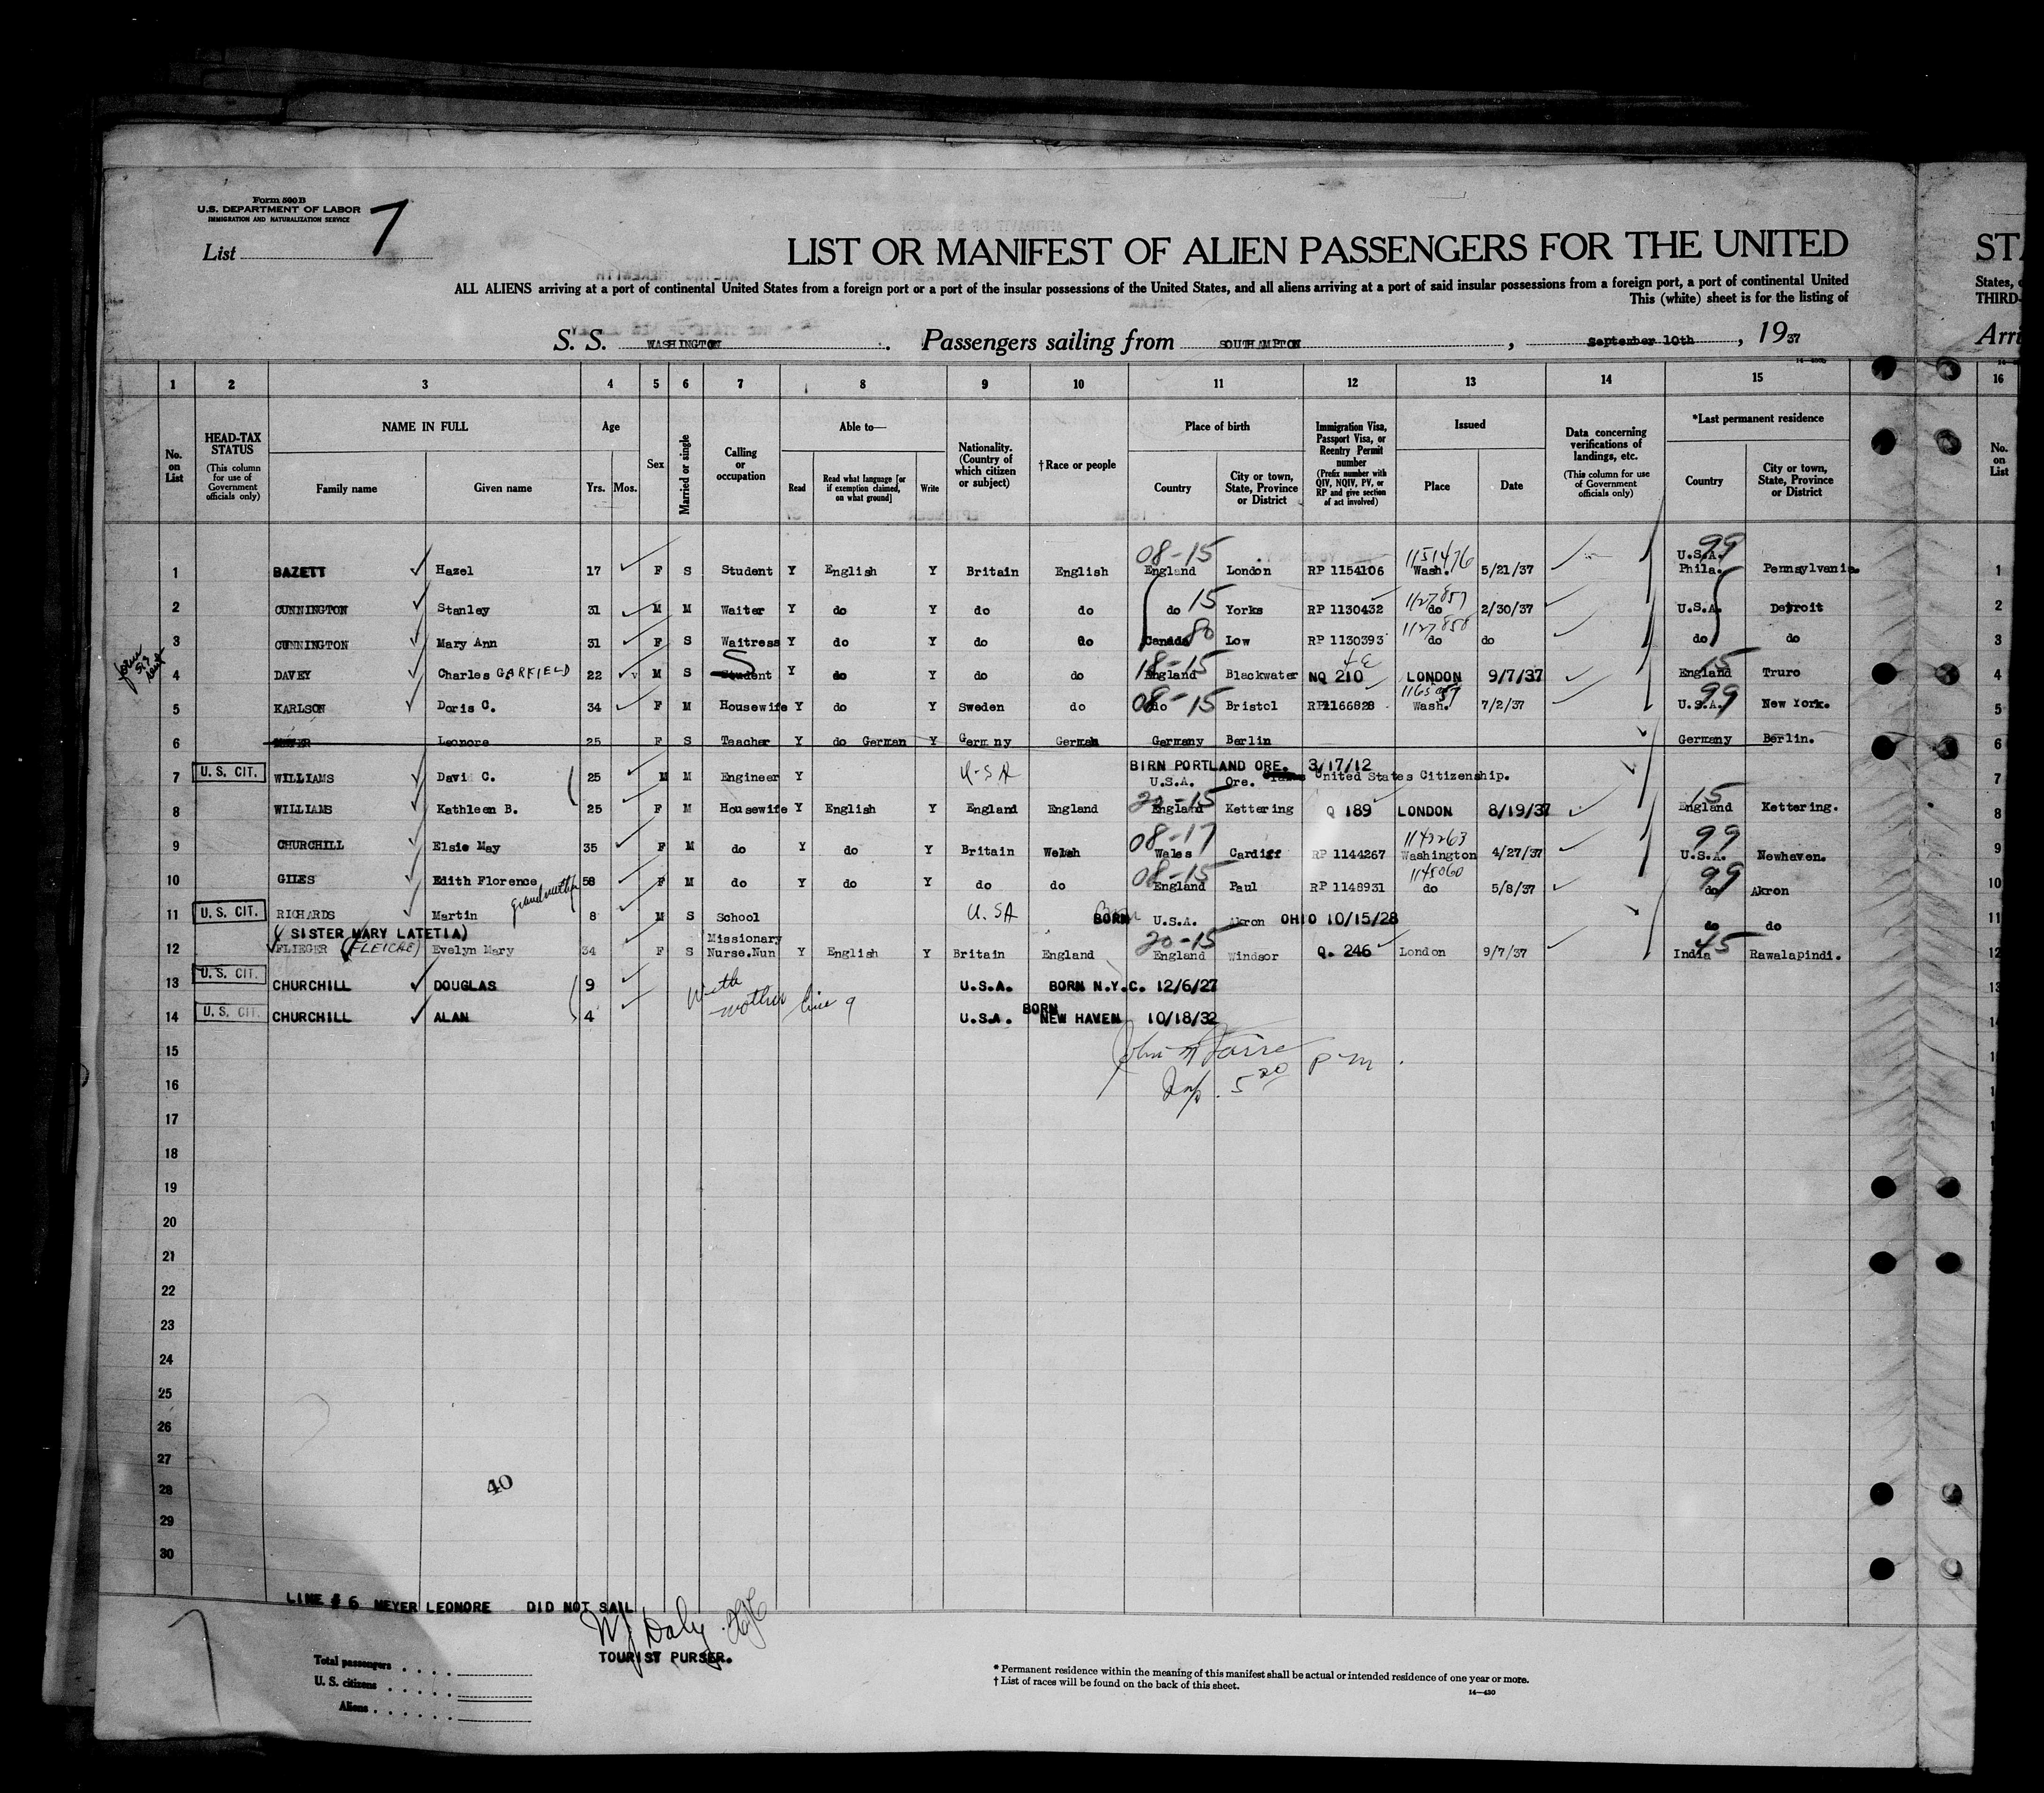 Form 500B
U.S. DEPARTMENT OF LABOR
IMMIGRATION AND NATURALIZATION SERVICE
List 7
LIST OR MANIFEST OF ALIEN PASSENGERS FOR THE UNITED
ALL ALIENS arriving at a port of continental United States from a foreign port or a port of the insular possessions of the United States, and all aliens arriving at a port of said insular possessions from a foreign port, a port of continental United
This (white) sheet is for the listing of
S. S. WASHINGTON. Passengers sailing from SOUTHAMPTON, September 10th, 1937
STA
States,
THIRD-
Arri
1 2 3 4 5 6 7 8 9 10 11 12 13 14 15 16
No. on List
HEAD-TAX STATUS
(This column for use of Government officials only)
NAME IN FULL
Family name Given name
Age
Yrs. Mos.
Sex
Married or single
Calling or occupation
Able to—
Read Read what language [or if exemption claimed, on what ground] Write
Nationality. (Country of which citizen or subject)
†Race or people
Place of birth
Country City or town, State, Province or District
Immigration Visa, Passport Visa, or Reentry Permit number
(Prefix number with QIV, NQIV, PV, or RP and give section of act involved)
Issued
Place Date
Data concerning verifications of landings, etc.
(This column for use of Government officials only)
*Last permanent residence
Country City or town, State, Province or District
No. on List
08-15 1151476 U.S.A. 99
1 BAZETT Hazel 17 F S Student Y English Y Britain English England London RP 1154106 Wash. 5/21/37 Phila. Pennsylvania. 1
2 CUNNINGTON Stanley 31 M M Waiter Y do Y do do do 15 Yorks RP 1130432 1127857 do 2/30/37 U.S.A. Detroit 2
3 CUNNINGTON Mary Ann 31 F S Waitress Y do Y do do Canada 80 Low RP 1130393 1127858 do do do do 3
4 DAVEY Charles GARFIELD 22 v M S Student S Y do Y do do 18-15 England Blackwater NQ 210 4E LONDON 9/7/37 England 15 Truro 4
5 KARLSON Doris C. 34 F M Housewife Y do Y Sweden do 08-15 do Bristol RP1166828 Wash. 7/2/37 U.S.A. 99 New York. 5
6 MEYER Leonore 25 F S Teacher Y do German Y Germny German Germany Berlin Germany Berlin. 6
BIRN PORTLAND ORE. 3/17/12
7 U.S. CIT. WILLIAMS Davi C. 25 M M Engineer Y U-SA U.S.A. Ore. United States Citizenship. 7
8 WILLIAMS Kathleen B. 25 F M Housewife Y English Y England England 20-15 England Kettering Q 189 LONDON 8/19/37 15 England Kettering. 8
9 CHURCHILL Elsie May 35 F M do Y do Y Britain Welsh 08-17 Wales Cardiff RP 1144267 1142263 Washington 4/27/37 99 U.S.A. Newhaven. 9
10 GILES Edith Florence 58 F M do Y do Y do do 08-15 England Paul RP 1148931 1145060 do 5/8/37 99 do Akron 10
grandmother
11 U.S. CIT. RICHARDS Martin 8 M S School U.SA BORN U.S.A. Akron OHIO 10/15/28 do do 11
( SISTER MARY LATETIA)
12 FLIEGER (FLEICHE) Evelyn Mary 34 F S Missionary Nurse.Nun Y English Y Britain England 20-15 England Windsor Q. 246 London 9/7/37 India 45 Rawalapindi. 12
13 U.S. CIT. CHURCHILL DOUGLAS 9 U.S.A. BORN N.Y.C. 12/6/27 13
with mother line 9
14 U.S. CIT. CHURCHILL ALAN 4 U.S.A. BORN NEW HAVEN 10/18/32 14
15
Insp. 5 20 P-m.
16
17
18
19
20
21
22
23
24
25
26
27
40
28
29
30
LINE # 6 MEYER LEONORE DID NOT SAIL
MJ Daly
TOURIST PURSER.
7
Total passengers . . . .
U. S. citizens . . . . .
Aliens . . . . . .
* Permanent residence within the meaning of this manifest shall be actual or intended residence of one year or more.
† List of races will be found on the back of this sheet.
14—430